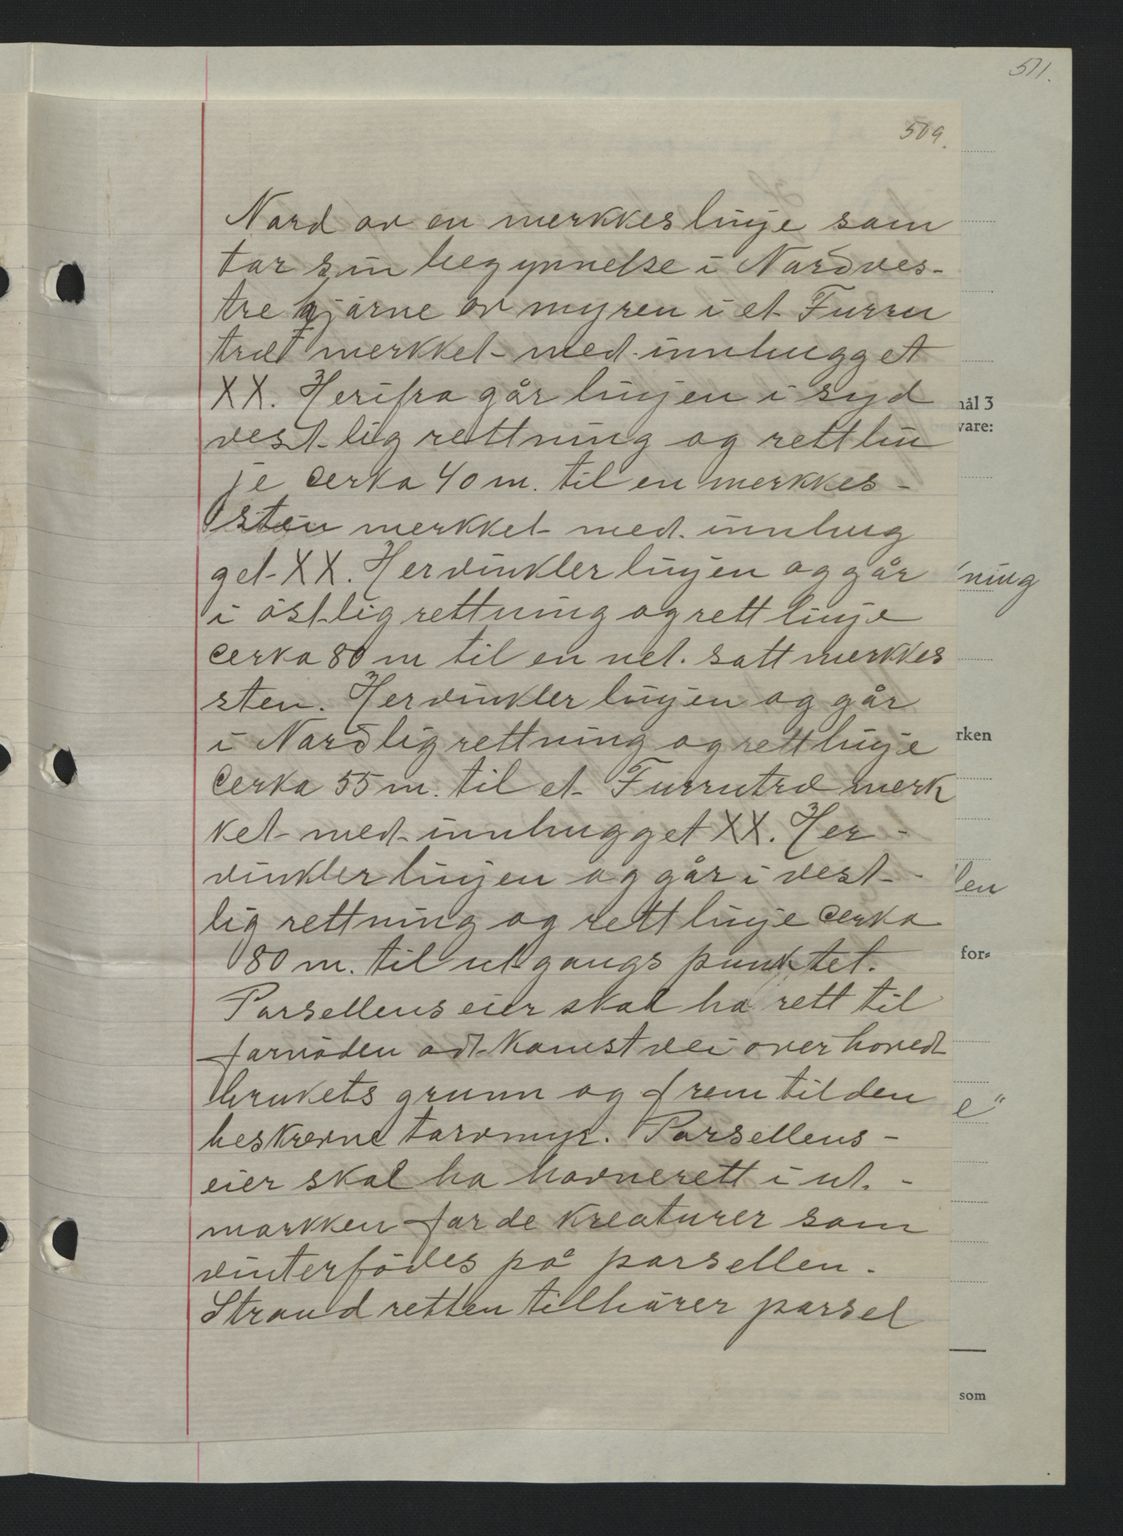 511.
509.
Nord av en merkkeslinje som
tar sin begynnelse i Nordves-
tre hjørne av myren i et Furru
træ merkket med innhugget
XX. Herifra går linjen i syd
vestlig rettning og rett lin
je cerka 40 m. til en merkkes-
sten merkket med innhug
get XX. Her vinkler linjen og går
i östlig rettning og rett linje
cerka 80 m til en net. satt merkkes
sten. Her vinkler linjen og går
i Nordlig rettning og rett linje
cerka 55 m. til et Furrutræ merk
ket med innhugget XX. Her-
vinkler linjen og går i vest-
lig rettning og rett linje cerka
80 m. til utgangs punktet.
Parsellens eier skal ha rett til
fornöden adkomstvei over hoved
brukets grunn og frem til den
beskrevne torvmyr. Parsellens-
eier skal ha havnerett i ut-
markken for de kreaturer som
vinterfödes på parsellen.
Strandretten tilhörer parsel
nål 3
vare:
ning
rken
len
for-
e"
som